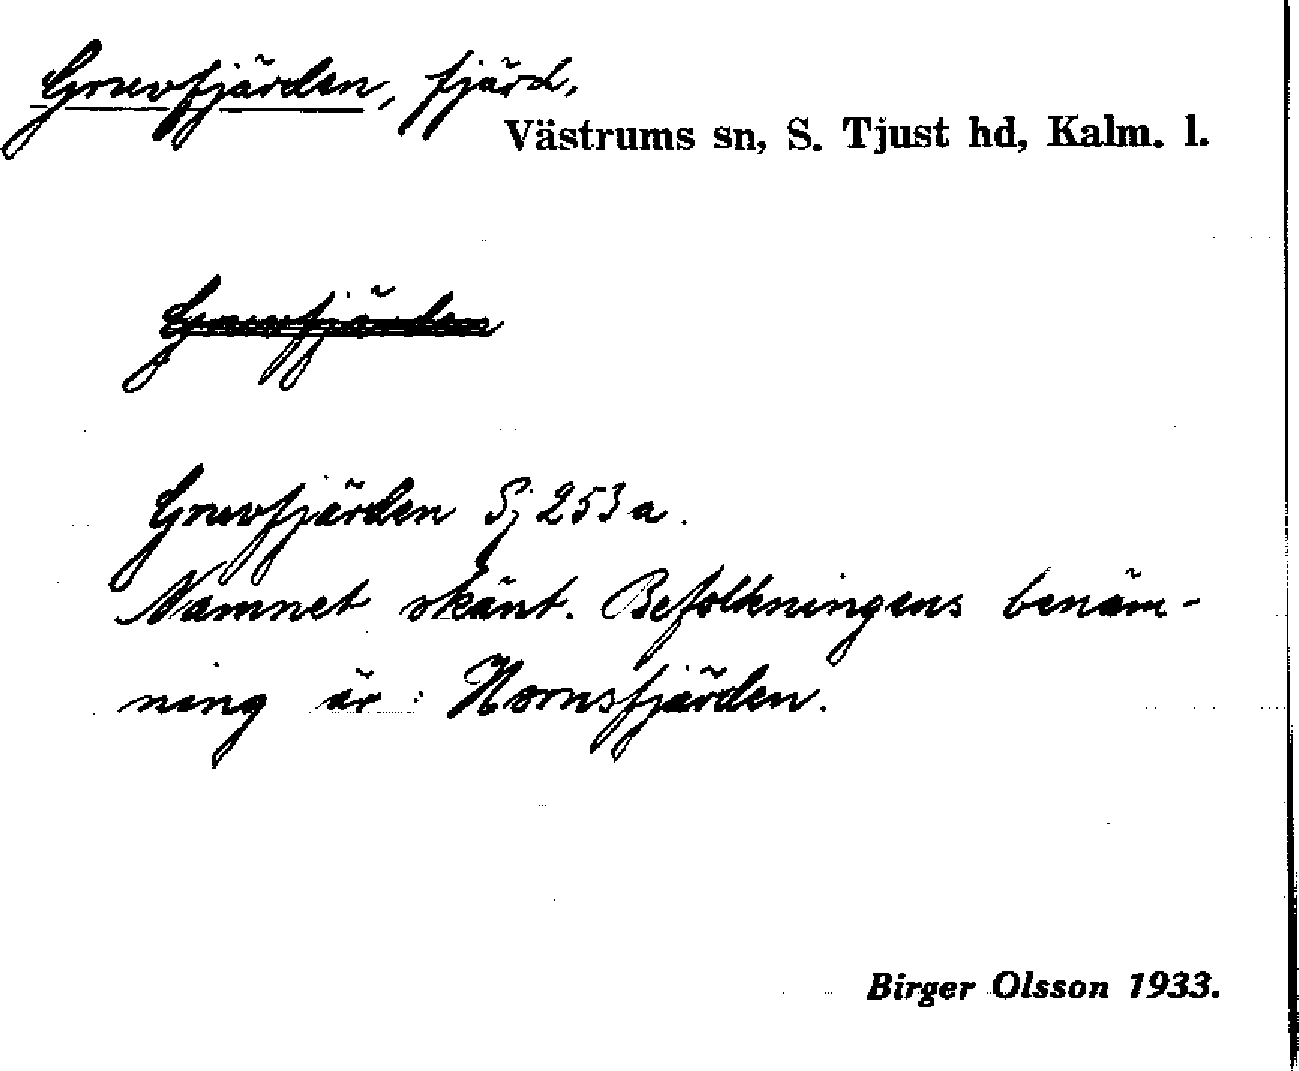 Gruvfjärden, fjärd,
Västrums sn, S. Tjust hd, Kalm. l.
Gruvfjärden
Gruvfjärden Sj 253 a.
Namnet okänt. Befolkningens benäm-
ning är: Hornsfjärden.
Birger Olsson 1933.